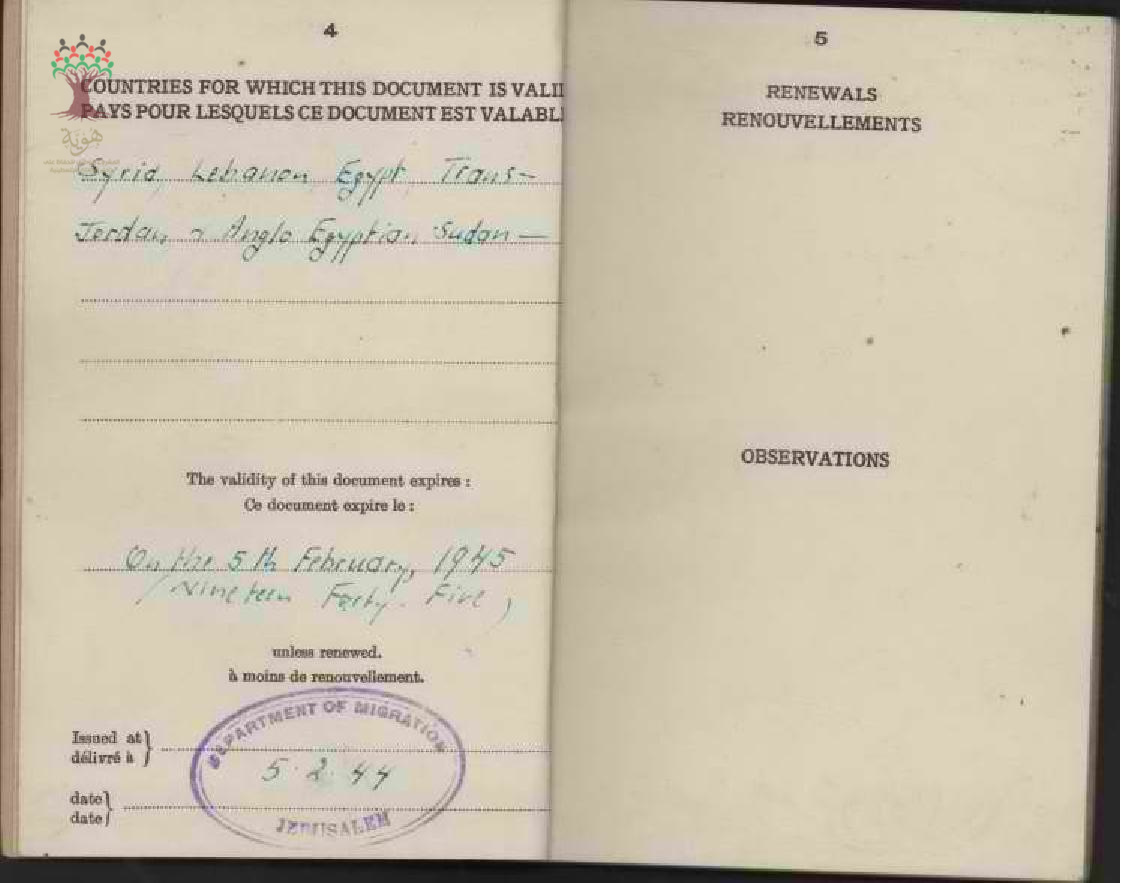 4
هوية
COUNTRIES FOR WHICH THIS DOCUMENT IS VALI
PAYS POUR LESQUELS CE DOCUMENT EST VALABL
Syria, Lebanon, Egypt, Trans-
Jordan & Anglo Egyptian Sudan —
The validity of this document expires :
Ce document expire le :
On the 5th February, 1945
(Nineteen Forty-Five)
unless renewed.
à moins de renouvellement.
Issued at
délivré à
DEPARTMENT OF MIGRATION
5.2.44
JERUSALEM
date
date
5
RENEWALS
RENOUVELLEMENTS
OBSERVATIONS